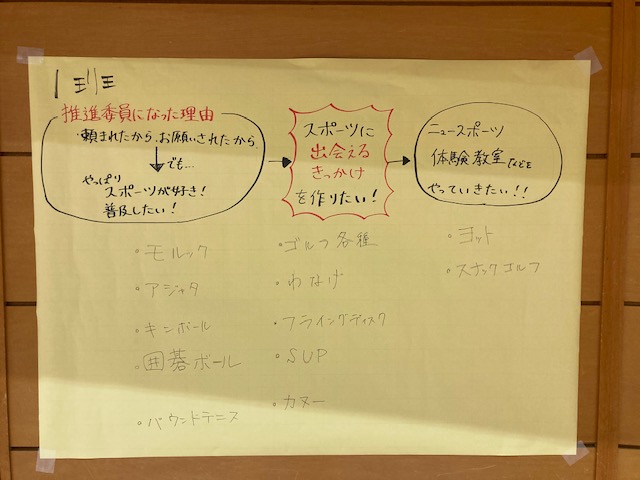 1班
推進委員になった理由
・頼まれたから、お願いされたから
でも…
やっぱり
スポーツが好き!
普及したい!
スポーツに
出会える
きっかけ
を作りたい!
ニュースポーツ
体験教室などを
やっていきたい!!
・モルック
・アジャタ
・キンボール
・囲碁ボール
・バウンドテニス
・ゴルフ各種
・わなげ
・フライングディスク
・SUP
・カヌー
・ヨット
・スナックゴルフ